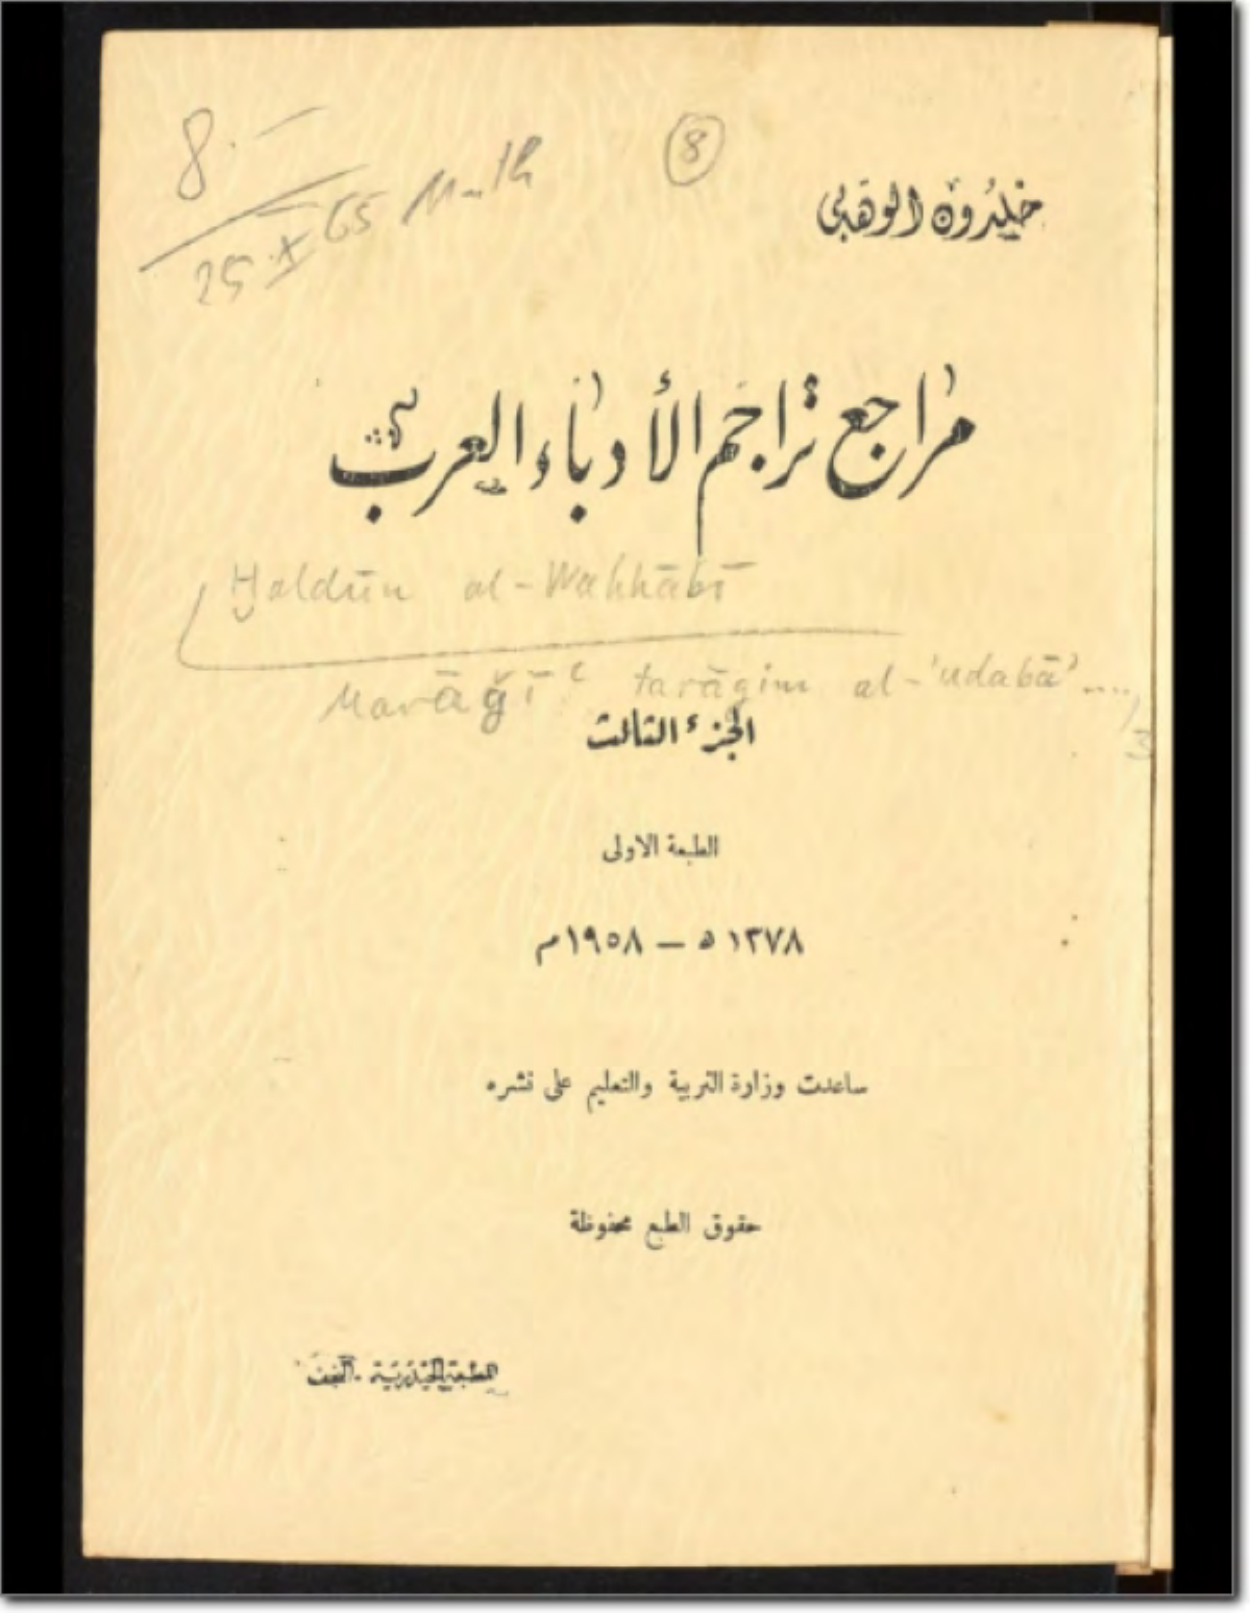 8.-
25.X 65
8
خلدون الوهابي
مراجع تراجم الأدباء العرب
Ḫaldūn al-Wahhābī
Marāǧīʿ tarāǧim al-ʾudabāʾ....,
3
الجزء الثالث
الطبعة الاولى
١٣٧٨ ه — ١٩٥٨ م
ساعدت وزارة التربية والتعليم على نشره
حقوق الطبع محفوظة
المطبعة الحيدرية - النجف